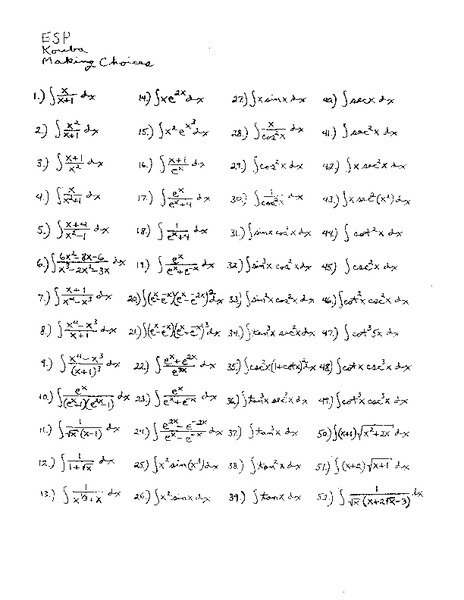 ESP
Kouba
Making Choices
1.) ∫ x/(x+1) dx
2.) ∫ x²/(x+1) dx
3.) ∫ (x+1)/x² dx
4.) ∫ x/(x²+1) dx
5.) ∫ (x+4)/(x²-1) dx
6.) ∫ (6x²-8x-6)/(x³-2x²-3x) dx
7.) ∫ (x+1)/(x⁴-x³) dx
8.) ∫ (x⁴-x³)/(x+1) dx
9.) ∫ (x⁴-x³)/(x+1)³ dx
10.) ∫ eˣ/((eˣ+1)(e²ˣ-1)) dx
11.) ∫ 1/(√x (x-1)) dx
12.) ∫ 1/(1+√x) dx
13.) ∫ 1/(x^(1/3)+x) dx
14.) ∫ xe²ˣ dx
15.) ∫ x² e^(x³) dx
16.) ∫ (x+1)/eˣ dx
17.) ∫ eˣ/(eˣ+4) dx
18.) ∫ 1/(eˣ+4) dx
19.) ∫ eˣ/(eˣ+e⁻ˣ) dx
20.) ∫ (eˣ-e⁻ˣ)(eˣ-e⁻²ˣ)² dx
21.) ∫ (eˣ-e⁻ˣ)(eˣ+e⁻ˣ)³ dx
22.) ∫ (eˣ+e²ˣ)/e³ˣ dx
23.) ∫ eˣ/(eˣ+e⁻ˣ) dx
24.) ∫ (e²ˣ-e⁻²ˣ)/(eˣ-e⁻ˣ) dx
25.) ∫ x² sin(x³) dx
26.) ∫ x² sin x dx
27.) ∫ x sin x dx
28.) ∫ x/cos²x dx
29.) ∫ cos²x dx
30.) ∫ 1/cos²x dx
31.) ∫ sin x cos²x dx
32.) ∫ sin³x cos²x dx
33.) ∫ sin²x cos²x dx
34.) ∫ tan³x sec²x dx
35.) ∫ csc²x (1+cot x)² dx
36.) ∫ tan³x sec³x dx
37.) ∫ tan³x dx
38.) ∫ tan²x dx
39.) ∫ tan x dx
40.) ∫ sec x dx
41.) ∫ sec²x dx
42.) ∫ x sec²x dx
43.) ∫ x sec²(x²) dx
44.) ∫ cot²x dx
45.) ∫ csc²x dx
46.) ∫ cot²x csc²x dx
47.) ∫ cot³5x dx
48.) ∫ cot x csc³x dx
49.) ∫ cot³x csc³x dx
50.) ∫ (x+1) √(x²+2x) dx
51.) ∫ (x+2) √(x+1) dx
52.) ∫ 1/(√x (x+2√x-3)) dx